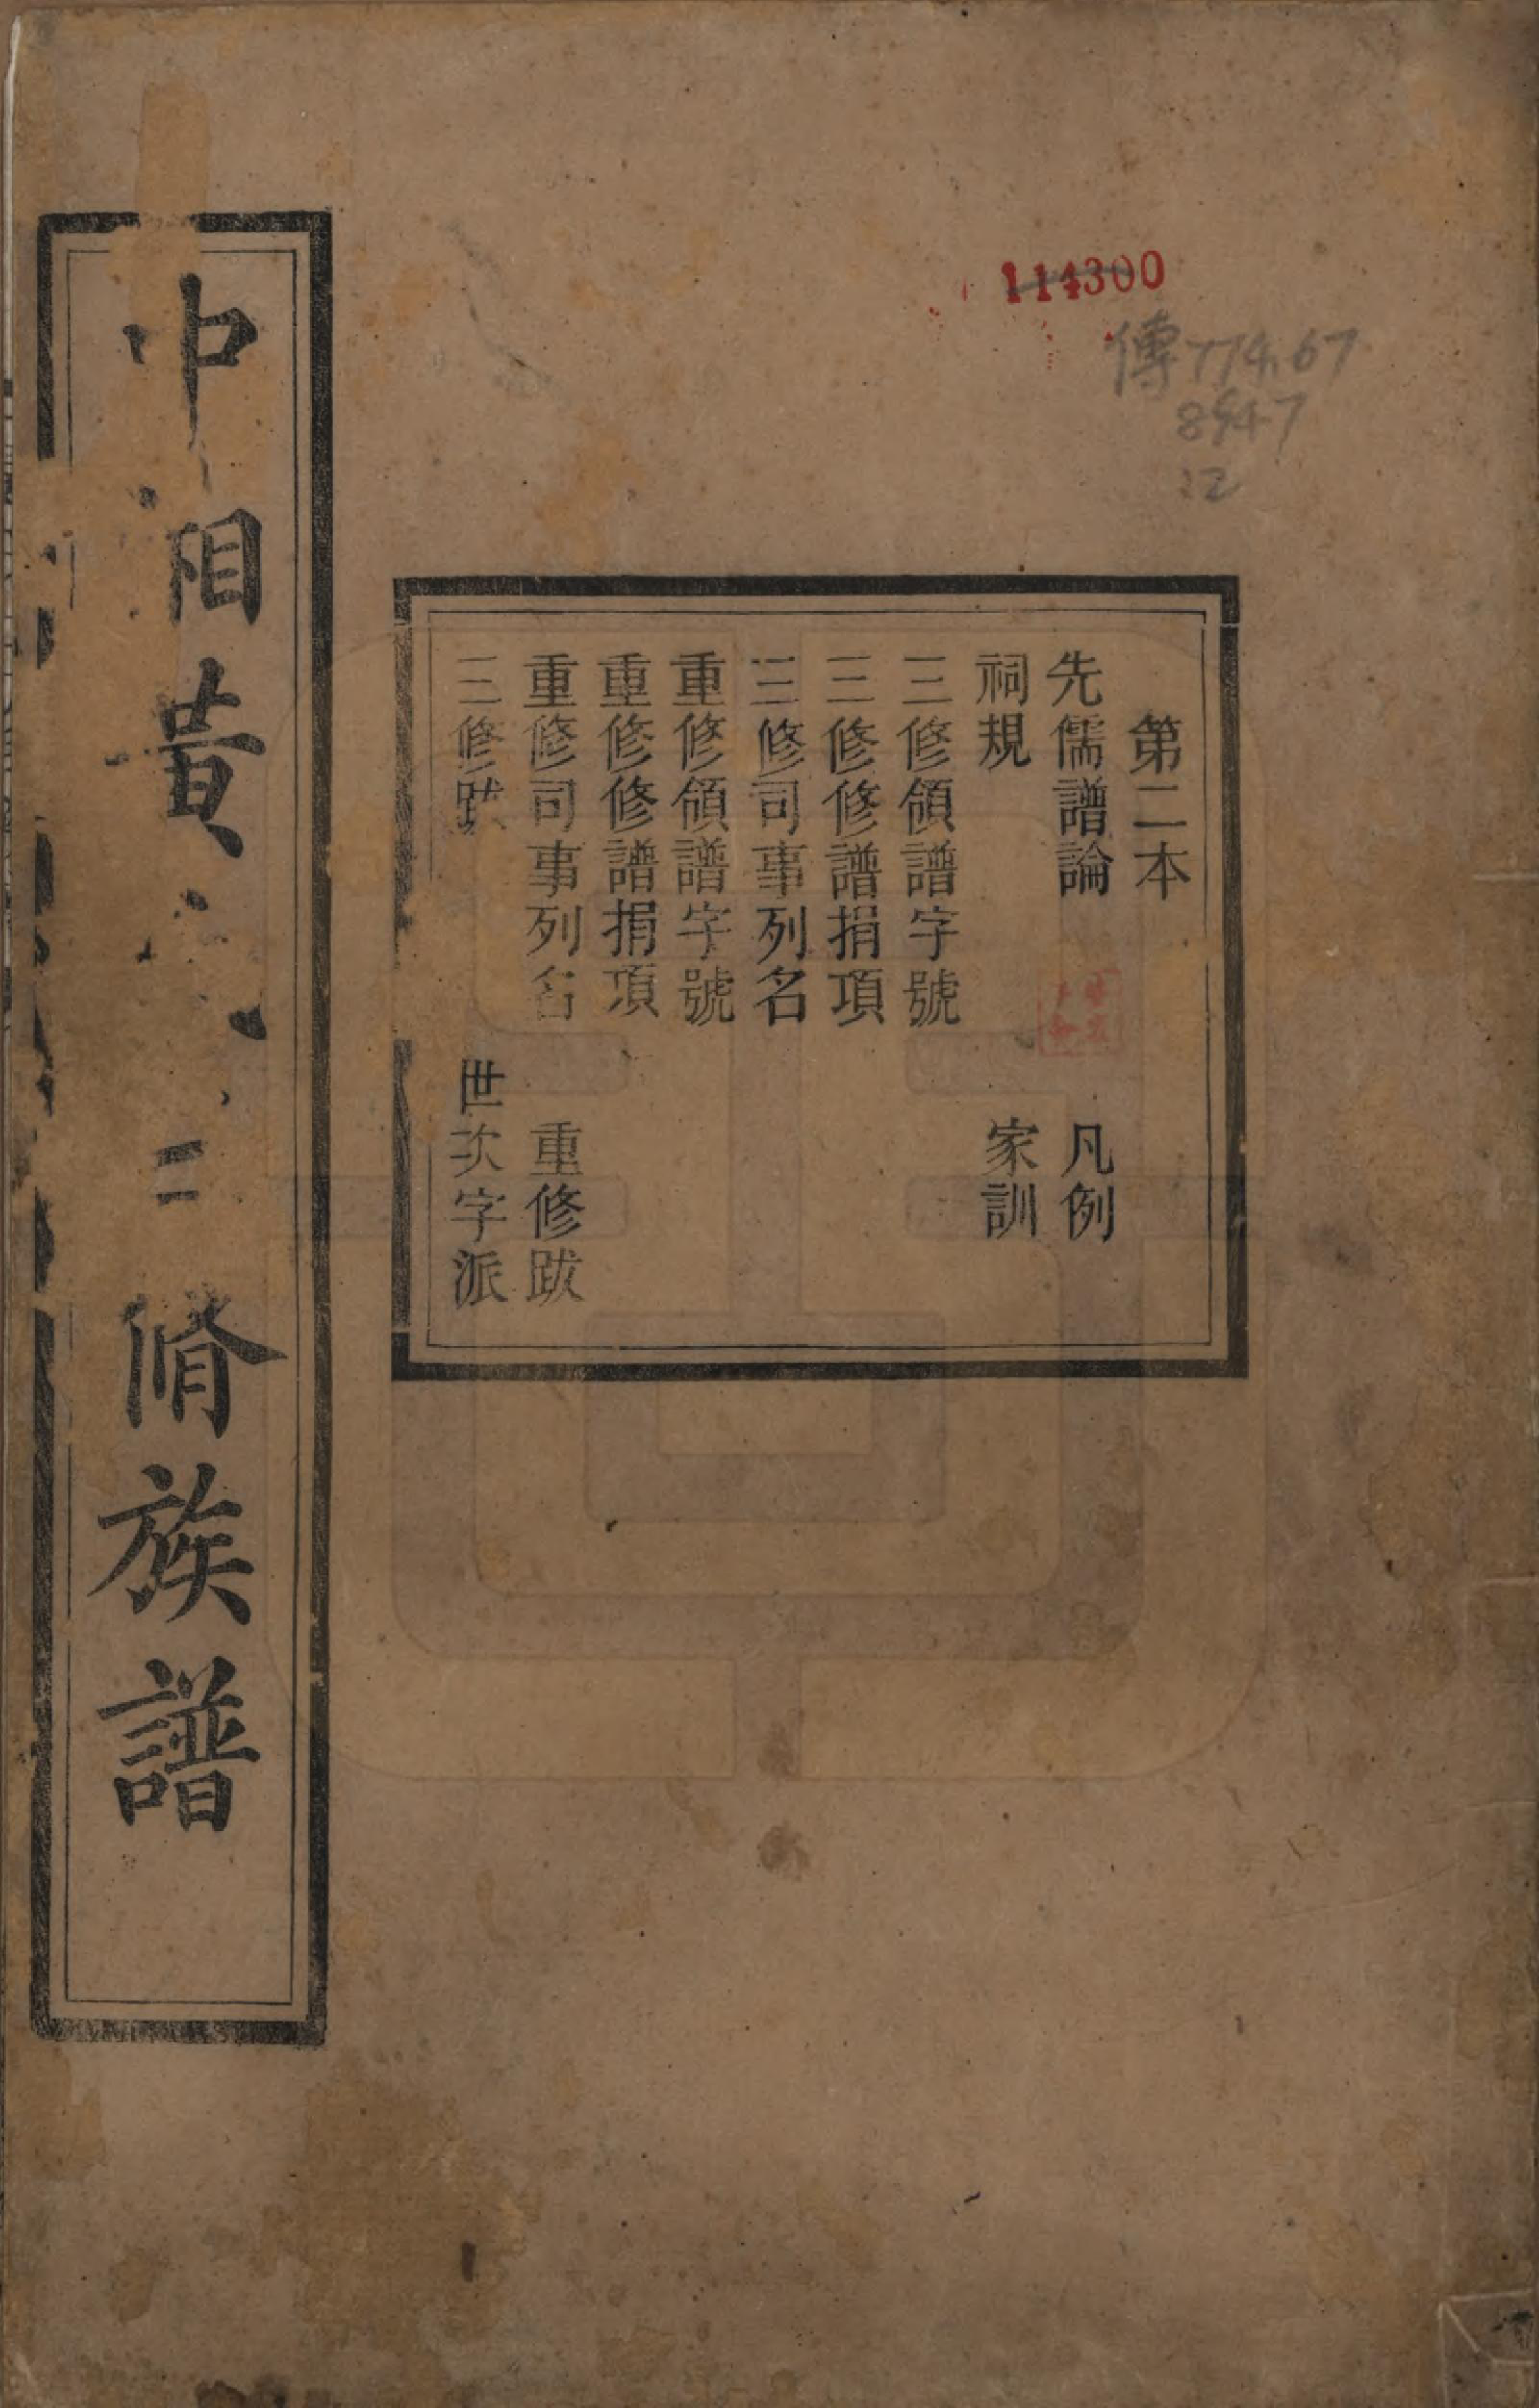 114300
傳774.67
8947
12
第二本
先儒譜論 凡例
祠規 家訓
三修領譜字號
三修修譜捐項
三修司事列名
重修領譜字號
重修修譜捐項
重修司事列名 重修跋
三修跋 世次字派
中湘黃 三脩族譜